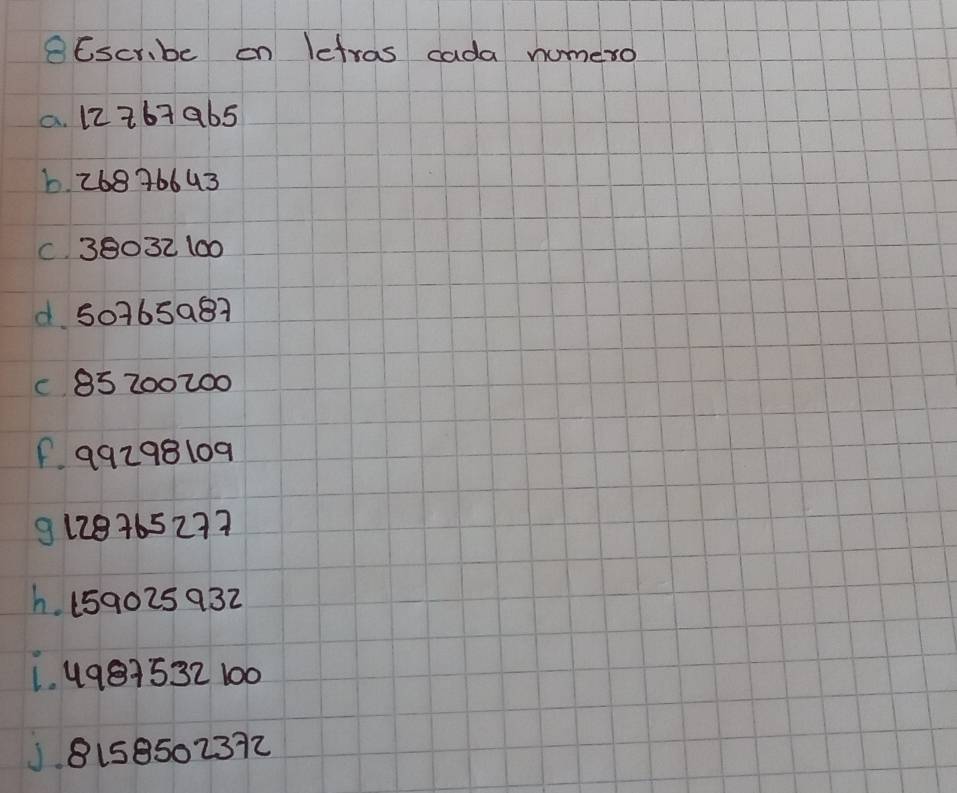 8 Escribe en letras cada numero
a. 12767965
b. 26876643
c. 38032100
d. 50765987
e. 85200200
f. 99298109
g 128765277
h. 159025932
i. 4987532100
j. 8158502372